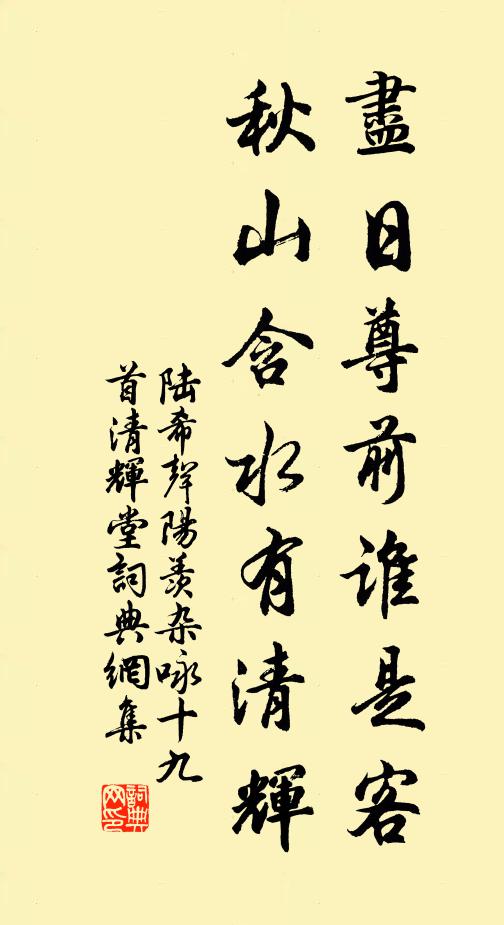 盡日尊前誰是客
秋山含水有清輝
陸希聲陽羨杂咏十九
首清輝堂詞典網集
詞典網印